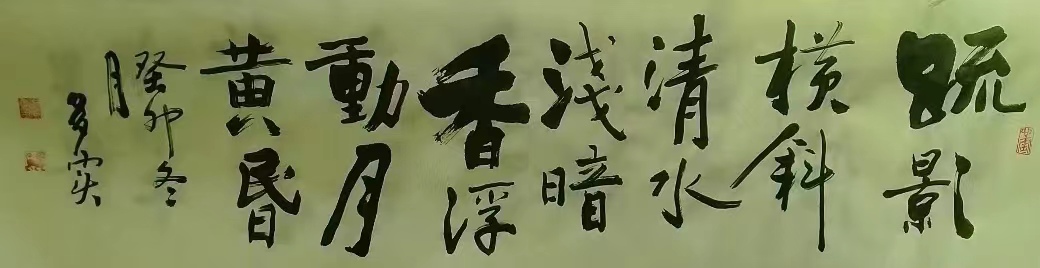 疏影
横斜
清水
淺暗
香浮
動月
黄昏
癸卯冬
月
多实